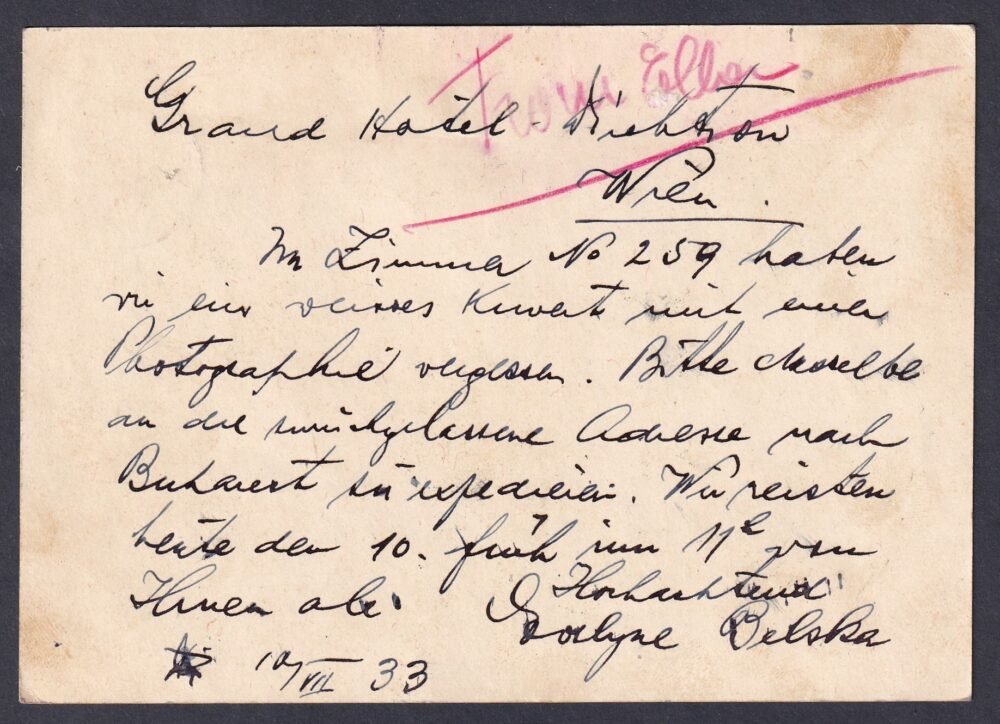 Grand Hotel-Direktion
Wien.
Im Zimmer No 259 haben
wir ein weisses Kuvert mit einer
Photographie vergessen. Bitte dasselbe
an die zurückgelassene Adresse nach
Bukarest zu expedieren. Wir reisten
heute den 10. früh um 11h von
Ihnen ab. Hochachtend
Evelyne Belska
10/VII 33